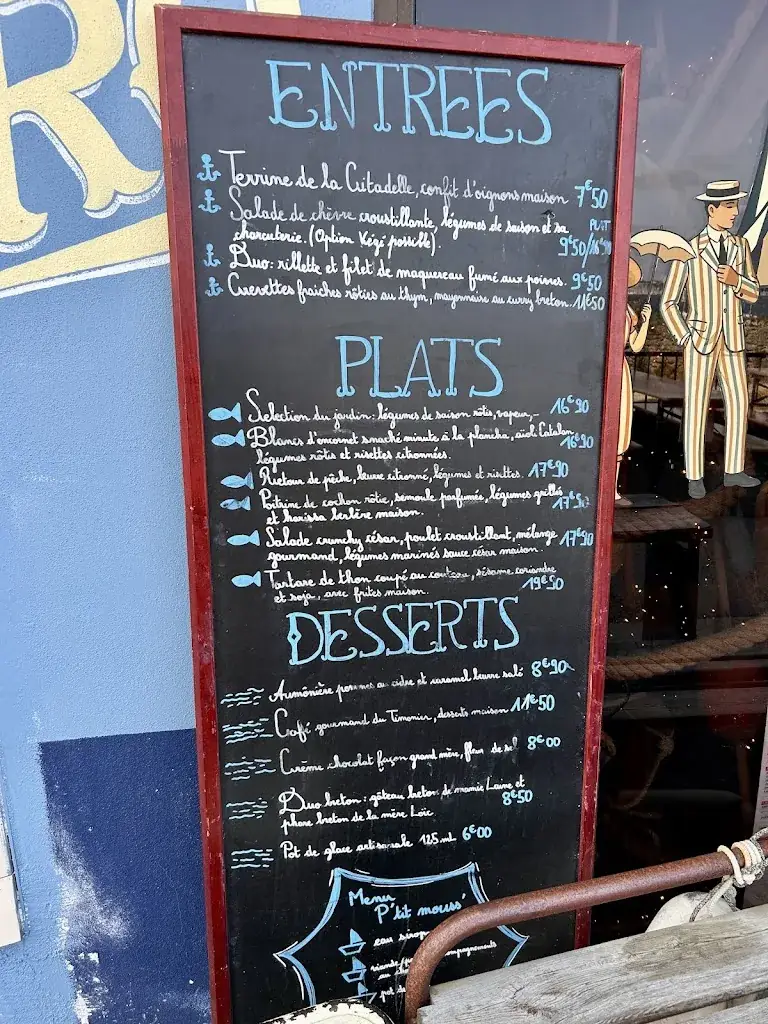 R
ENTREES
Terrine de la Citadelle, confit d'oignons maison 7€50
Salade de chèvre croustillante, légumes de saison et sa PLAT
charcuterie. (Option Végé possible). 9€50/16€90
Duo: rillette et filet de maquereau fumé aux poivres. 9€50
Crevettes fraiches rôties au thym, mayonnaise au curry breton. 11€50
PLATS
Selection du jardin: légumes de saison rôtis, vapeur,- 16€90
Blancs d'encornet snaché minute à la plancha, aïoli Catalan 16€90
légumes rôtis et risettes citronnées.
Retour de pêche, beurre citronné, légumes et risettes. 17€90
Poitrine de cochon rôtie, semoule parfumée, légumes grillés 17€90
et harissa berbère maison.
Salade crunchy césar, poulet croustillant, mélange 17€90
gourmand, légumes marinés sauce césar maison.
Tartare de thon coupé au couteau, sésame coriandre
et soja, avec frites maison. 19€50
DESSERTS
Aumônière pommes au cidre et caramel beurre salé 8€90
Café gourmand du Timonier, desserts maison 11€50
Crème chocolat façon grand mère, fleur de sel 8€00
Duo breton: gâteau breton de mamie Laine et
phare breton de la mère Loïc 8€50
Pot de glace artisanale 125 ml 6€00
Menu
P'tit mouss'
eau sirop
viande/ compagnements
au
pot de